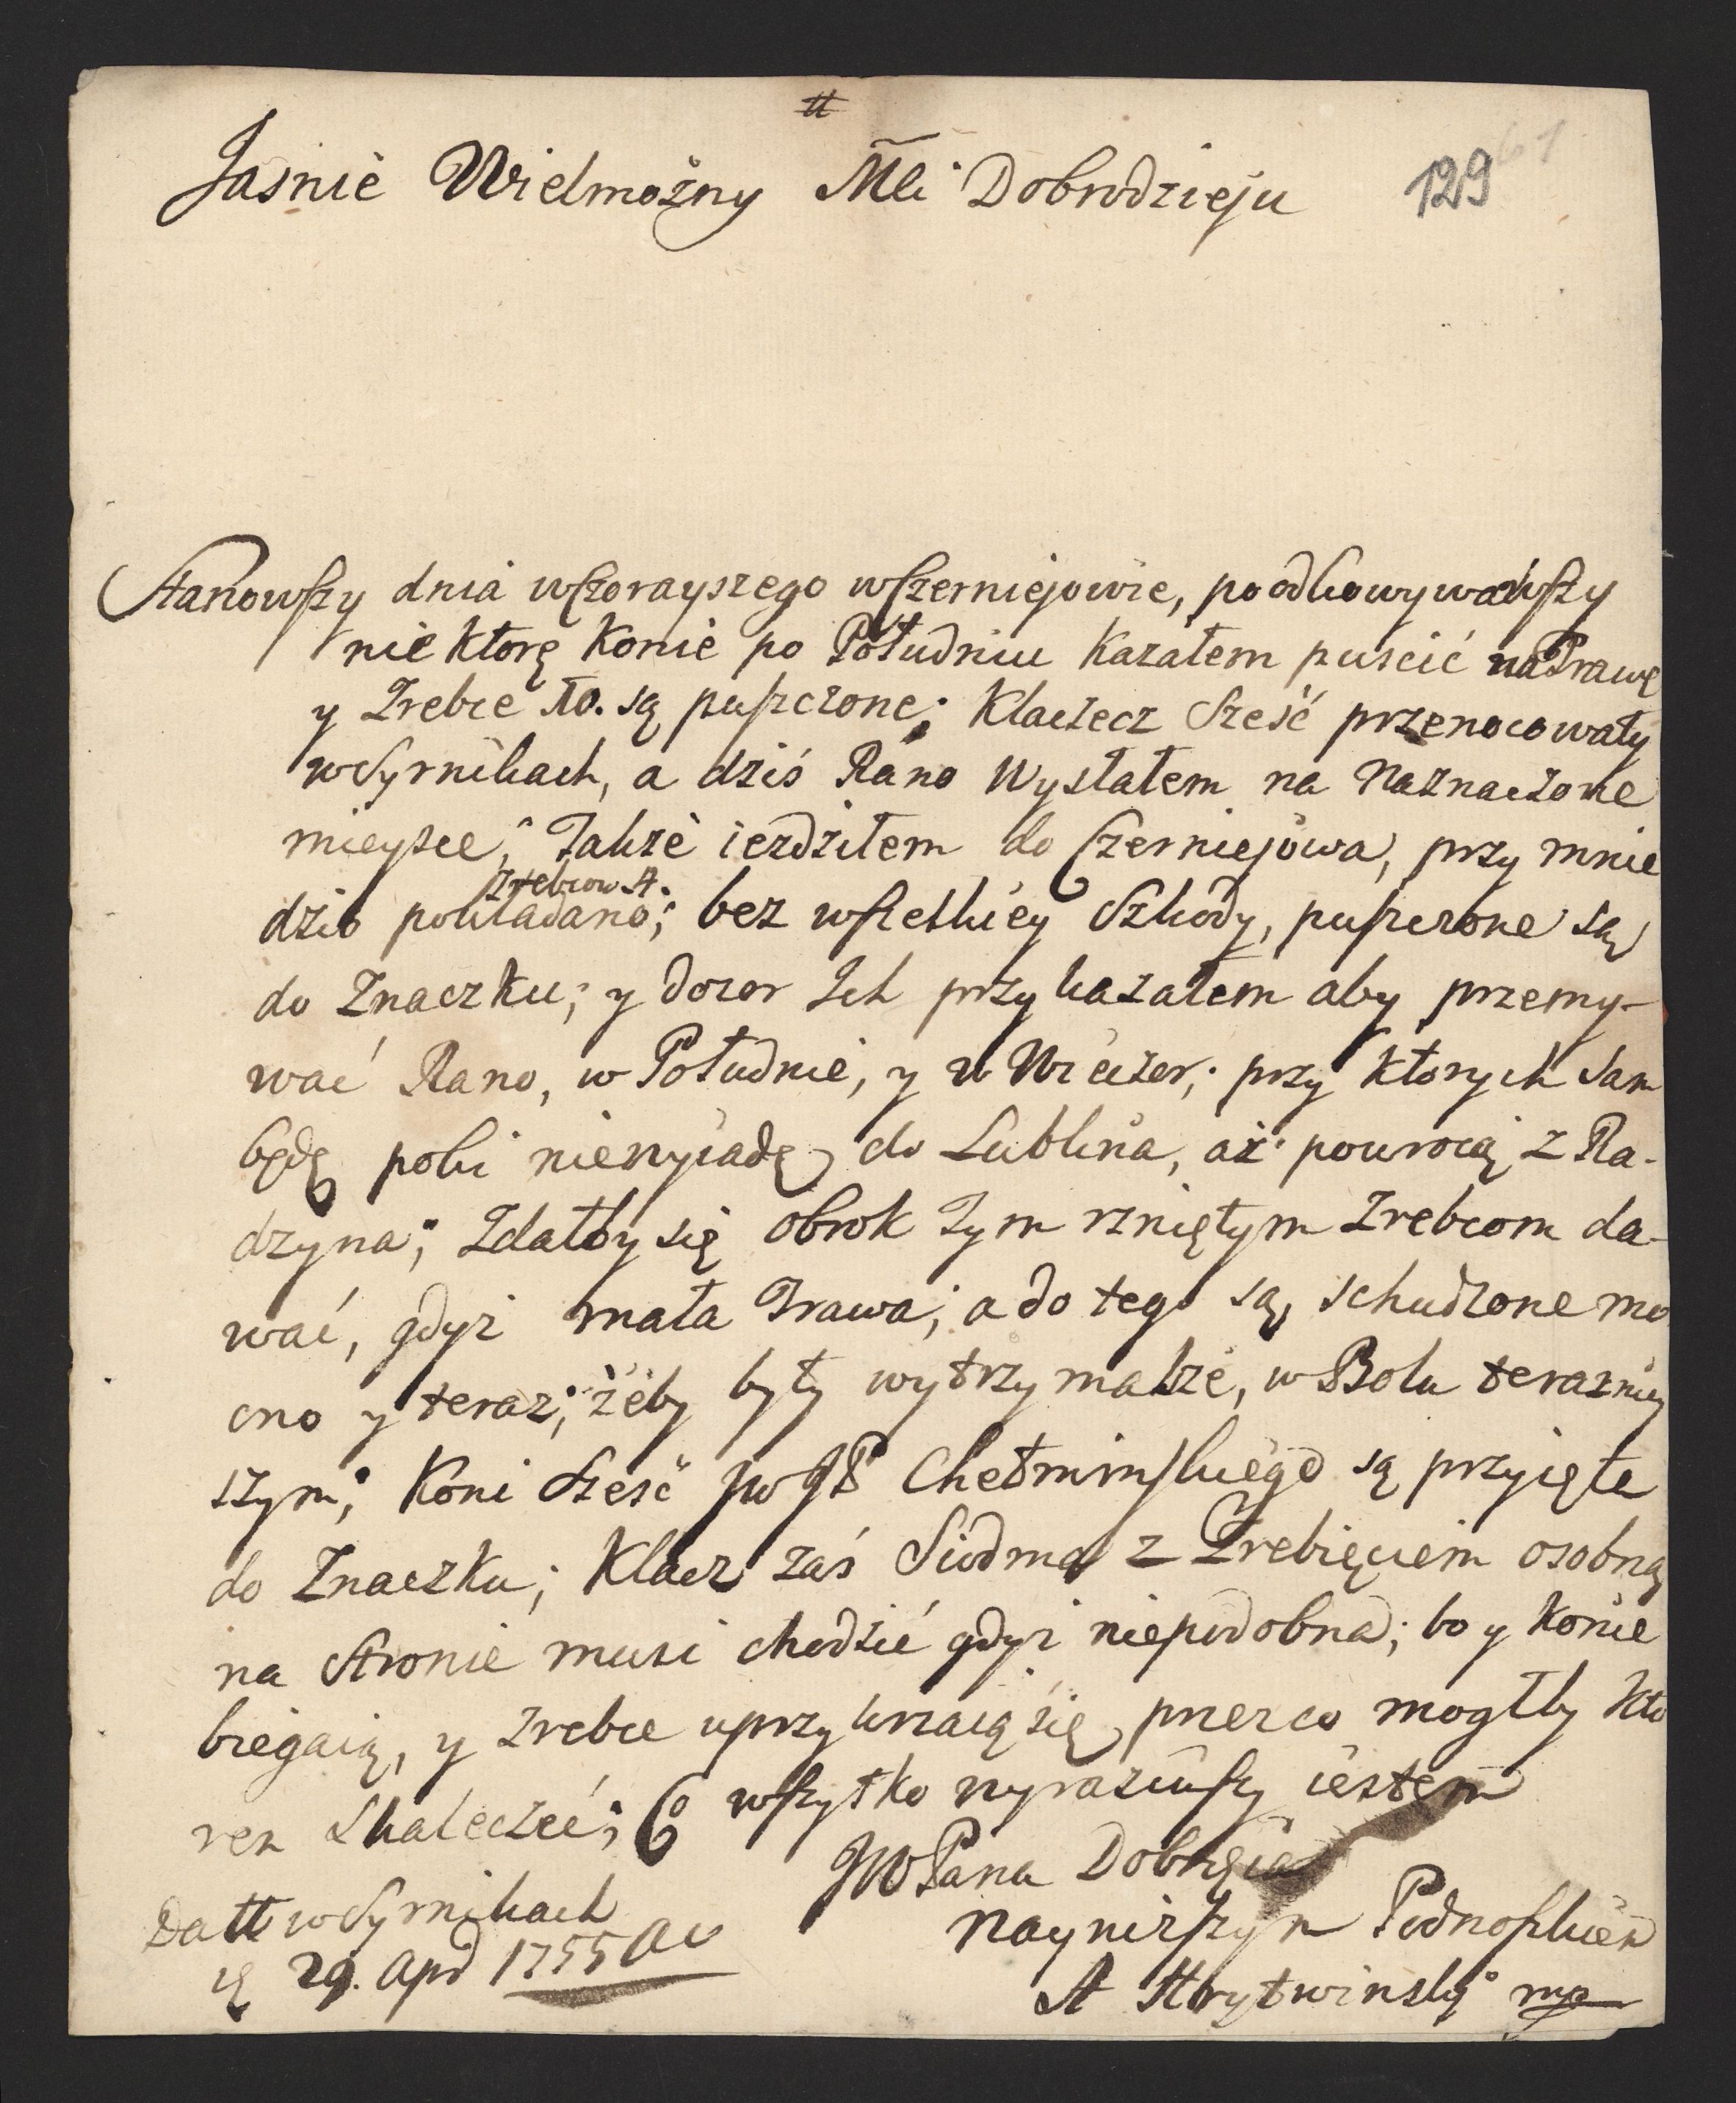 tt
Jasnie Wielmożny Mći Dobrodzieju
129
61
Stanowszy dnia wczorayszego w Czerniejowie, poodkowywawszy
nie ktorę Konie po Południu Kazałem puscić na Trawę
y Zrebce 10. są puszczone; Klaczecz Szesć przenocowały
w Syrnikach, a dziś Rano Wysłałem na Naznaczone
mieysce, Takze iezdziłem do Czerniejowa, przy mnie
Zrebcow 4.
dziś pokładano; bez wszelkiey Szkody, puszczone są
do Znaczku; y dozor Ich przykazałem aby przemy-
wać Rano, w Południe, y w Wieczor; przy ktorych Sam
będę poki niewyiadę do Lublina, aż powrocą z Ra-
dzyna; Zdałby się obrok Tym rzniętym Zrebcom da-
wać, gdyz mała Trawa; a do tego są schudzone mo
cno y teraz; żeby były wytrzymalsze, w Bolu teraznie
szym; Koni Szesć JW JP Chełminskiego są przyięte
do Znaczku; Klacz zaś Siodma z Zrebięciem osobną
na Stronie musi chodzić gdyz niepodobna; bo y Konie
biegaią, y Zrebce uprzykrzaią się, przez co mogłby Kto
ren Skaleczeć; Co wszytko wyraziwszy iestem
JWPana Dobrżeia
Nayniższym Podnoszkiem
A Hrytwinsky mp
Datt w Syrnikach
29. Apr 1755 Ao